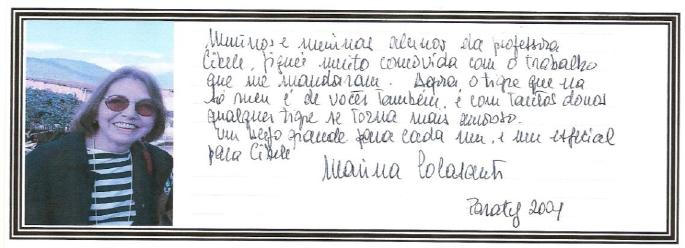 Meninos e meninas alunos da professora
Cibele, fiquei muito comovida com o trabalho
que me mandaram. Agora, o tigre que
só meu é de vocês também, e com tantos donos
qualquer tigre se torna mais amoroso.
Um beijo grande para cada um, e um especial
para Cibele
Marina Colasanti
Paraty 2004